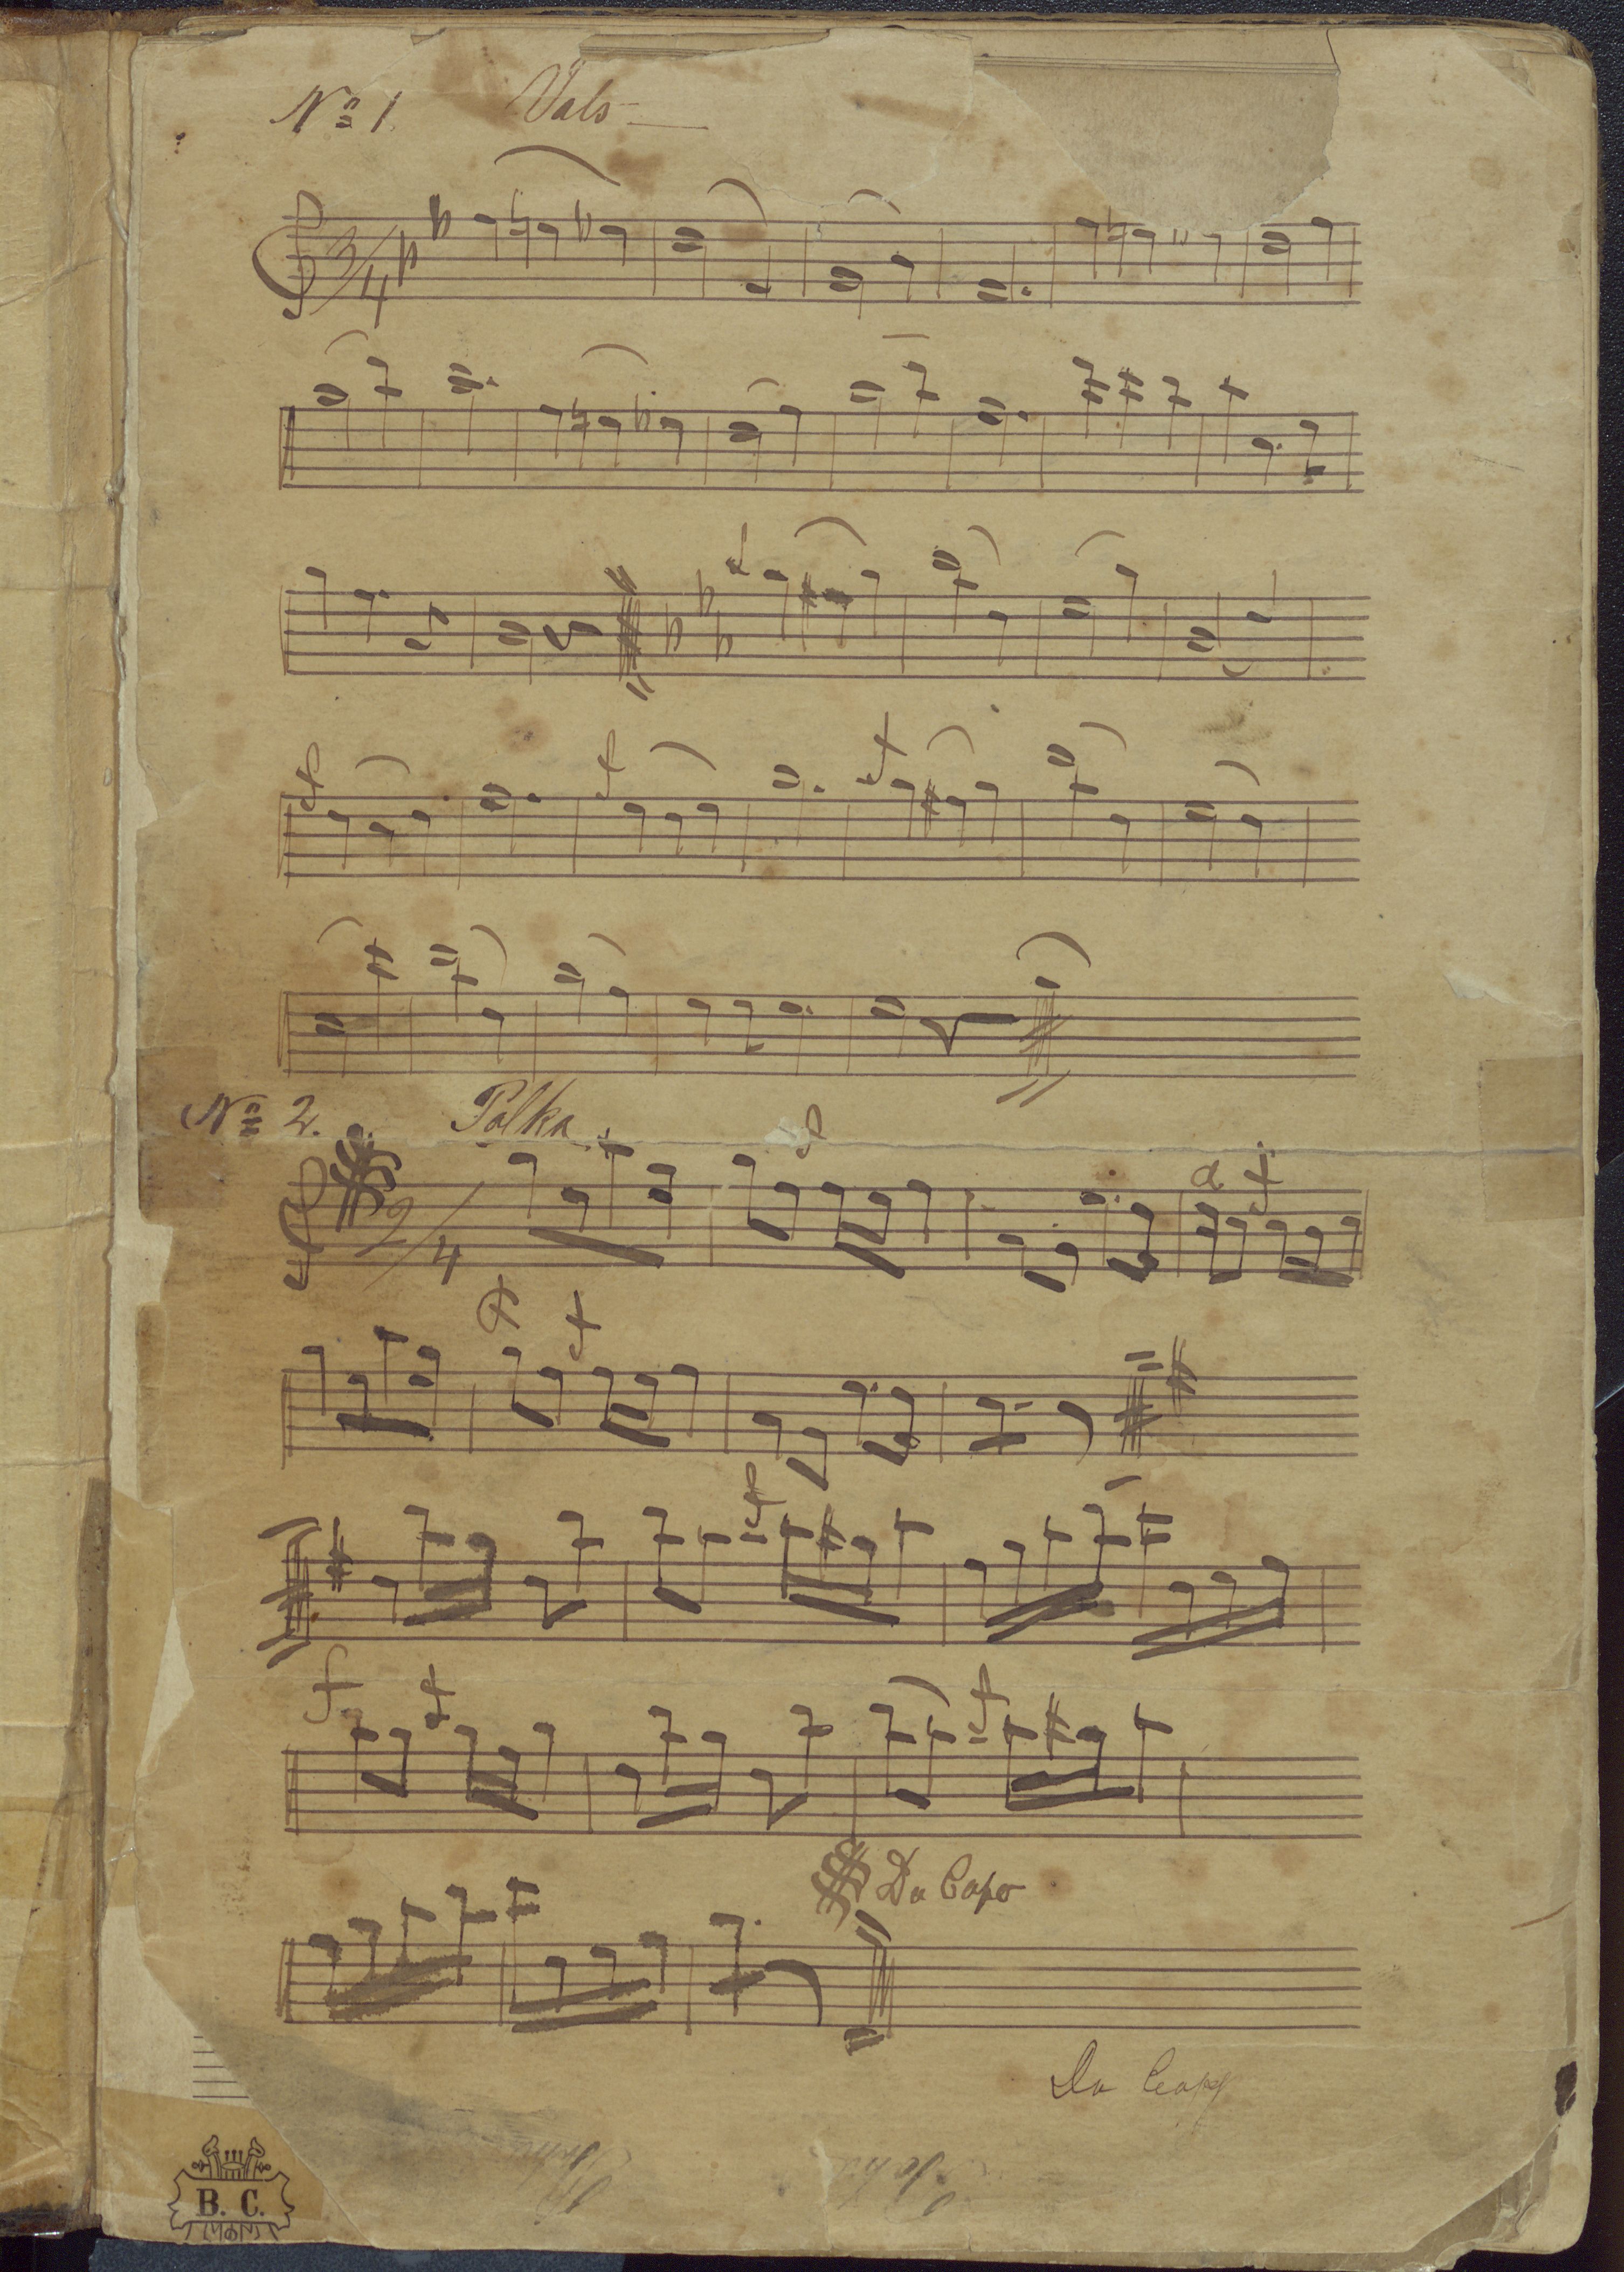 Nº 1. Vals
3/4
Nº 2. Polka
2/4
Da Capo
Da Capo
B. C.